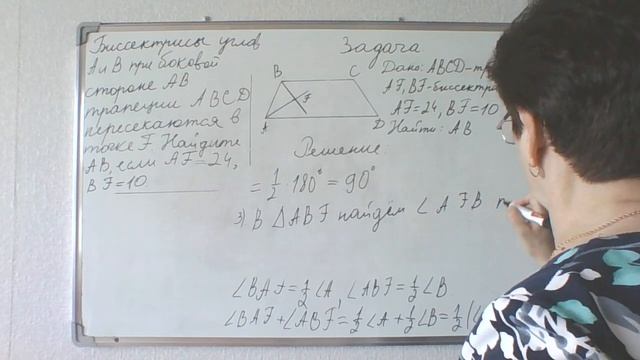 Биссектрисы углов
А и В при боковой
стороне АВ
трапеции ABCD
пересекаются в
точке F. Найдите
АВ, если AF=24,
BF=10
Задача
Дано: ABCD-
AF, BF-
AF=24, BF=10
Найти: АВ
B
C
F
A
D
Решение
= 1/2 · 180° = 90°
3) В △ABF найдём ∠AFB
∠BAF = 1/2 ∠A, ∠ABF = 1/2 ∠B
∠BAF + ∠ABF = 1/2 ∠A + 1/2 ∠B = 1/2 (∠